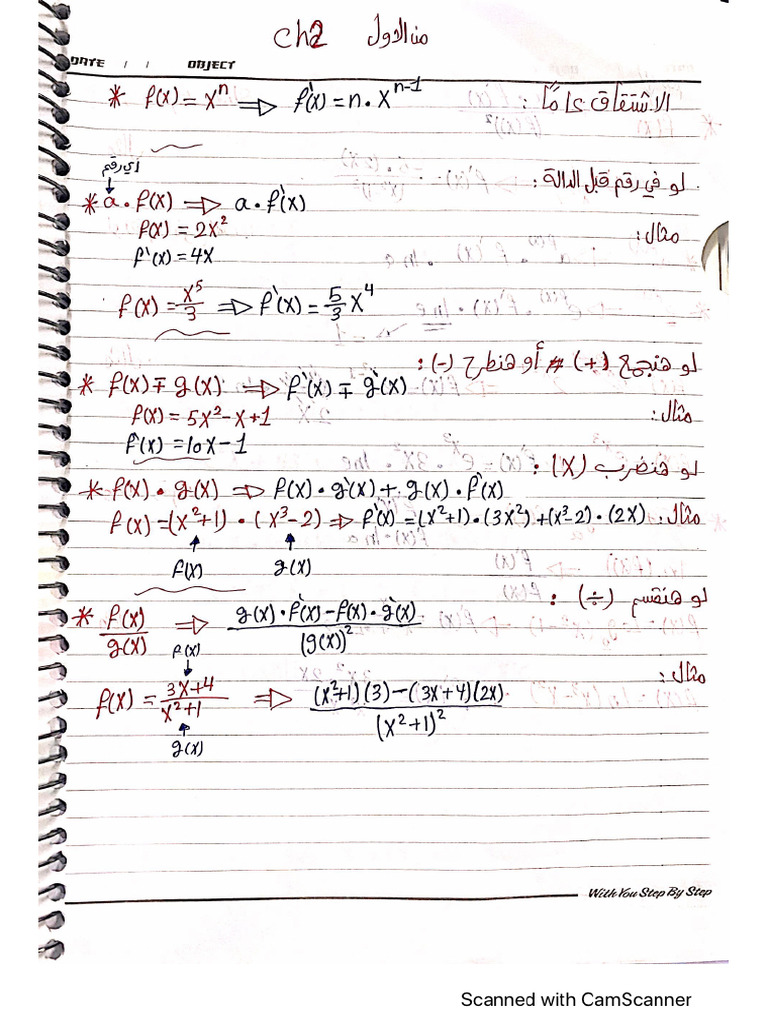 Ch2 من الاول
DATE / / OBJECT
* f(x) = x^n ⇒ f`(x) = n . x^(n-1) الاشتقاق عامةً :
لو في رقم قبل الدالة :
أي رقم
↓
* a . f(x) ⇒ a . f`(x)
مثال :
f(x) = 2x²
f`(x) = 4x
f(x) = x⁵/3 ⇒ f`(x) = 5/3 x⁴
لو هنجمع (+) أو هنطرح (-) :
* f(x) ∓ g(x) ⇒ f`(x) ∓ g`(x)
مثال :
f(x) = 5x² - x + 1
f`(x) = 10x - 1
لو هنضرب (X) :
* f(x) . g(x) ⇒ f(x) . g`(x) + g(x) . f`(x)
مثال : f(x) = (x²+1) . (x³-2) ⇒ f`(x) = (x²+1) . (3x²) + (x³-2) . (2x)
↑ ↑
f(x) g(x)
لو هنقسم (÷) :
* f(x)/g(x) ⇒ g(x) . f`(x) - f(x) . g`(x) / (g(x))²
مثال :
f(x)
↓
f(x) = 3x+4 / x²+1 ⇒ (x²+1)(3) - (3x+4)(2x) / (x²+1)²
↑
g(x)
With You Step By Step
Scanned with CamScanner